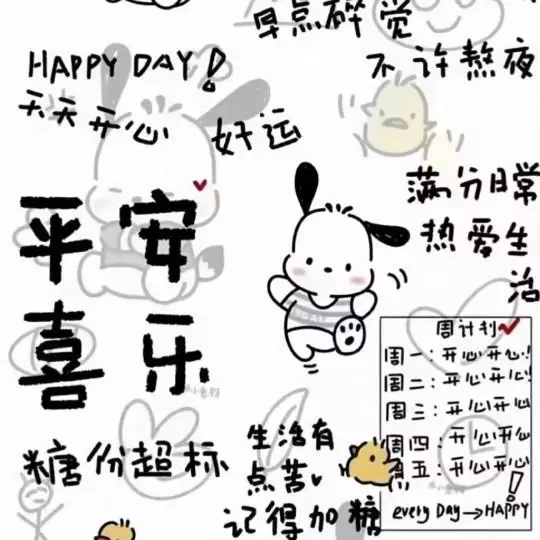 早点碎觉
不许熬夜
HAPPY DAY!
天天开心
好运
平安
喜乐
满分日常
热爱生活
周计划
周一：开心开心!
周二：开心开心!
周三：开心开心
周四：开心开心
周五：开心开心
every DAY→HAPPY!
糖份超标
生活有
点苦
记得加糖